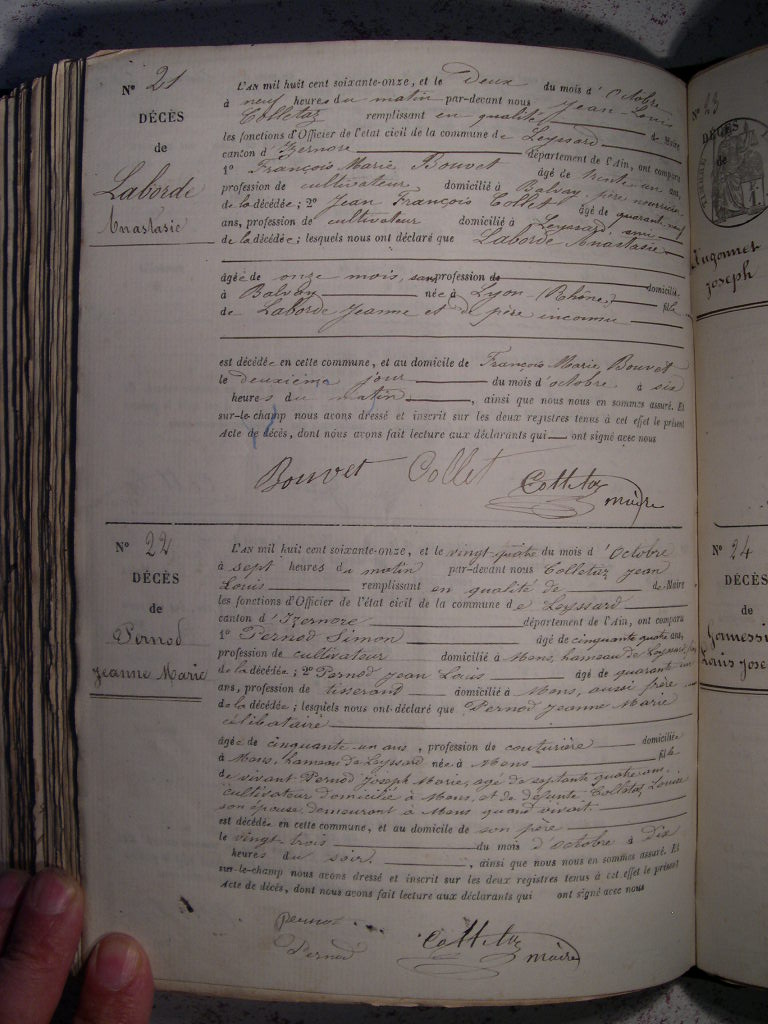 N° 21
DÉCÈS
de
Laborde
Anastasie
L'AN mil huit cent soixante-onze, et le Deux du mois d'Octobre
à neuf heures du matin par-devant nous Jean-Louis
Colletaz remplissant en qualité de Maire
les fonctions d'Officier de l'état civil de la commune de Leyssard
canton d'Izernore département de l'Ain, ont comparu
1° François Marie Bouvet âgé de trente un ans,
profession de cultivateur domicilié à Balvay père nourricier
de la décédée; 2° Jean François Collet âgé de quarante neuf
ans, profession de cultivateur domicilié à Leyssard, ami
de la décédée; lesquels nous ont déclaré que Laborde Anastasie
âgée de onze mois, sans profession de domiciliée
à Balvay née à Lyon (Rhône) fille
de Laborde Jeanne et de père inconnu
est décédée en cette commune, et au domicile de François Marie Bouvet
le deuxième jour du mois d'octobre à six
heures du matin, ainsi que nous nous en sommes assuré. Et
sur-le-champ nous avons dressé et inscrit sur les deux registres tenus à cet effet le présent
Acte de décès, dont nous avons fait lecture aux déclarants qui ont signé avec nous
Bouvet Collet Colletaz maire
N° 22
DÉCÈS
de
Pernod
Jeanne Marie
L'AN mil huit cent soixante-onze, et le vingt-quatre du mois d'Octobre
à sept heures du matin par-devant nous Colletaz Jean
Louis remplissant en qualité de de Maire
les fonctions d'Officier de l'état civil de la commune de Leyssard
canton d'Izernore département de l'Ain, ont comparu
1° Pernod Simon âgé de cinquante quatre ans,
profession de cultivateur domicilié à Mens, hameau de Leyssard, frère
de la décédée; 2° Pernod Jean Louis âgé de quarante un
ans, profession de tisserand domicilié à Mens, aussi frère
de la décédée; lesquels nous ont déclaré que Pernod Jeanne Marie
célibataire
âgée de cinquante un ans, profession de couturière domiciliée
à Mens, hameau de Leyssard née à Mens fille
de vivant Pernod Joseph Marie, agé de septante quatre ans,
cultivateur domicilié à Mens, et de défunte Colletaz Louise
son épouse demeurant à Mens quand vivait.
est décédée en cette commune, et au domicile de son père
le vingt trois du mois d'octobre à Dix
heures du soir, ainsi que nous nous en sommes assuré. Et
sur-le-champ nous avons dressé et inscrit sur les deux registres tenus à cet effet le présent
Acte de décès, dont nous avons fait lecture aux déclarants qui ont signé avec nous
pernod
Pernod Colletaz maire
N° 23
DÉCÈS
de
Hugonnet
Joseph
N° 24
DÉCÈS
de
Louis Jose